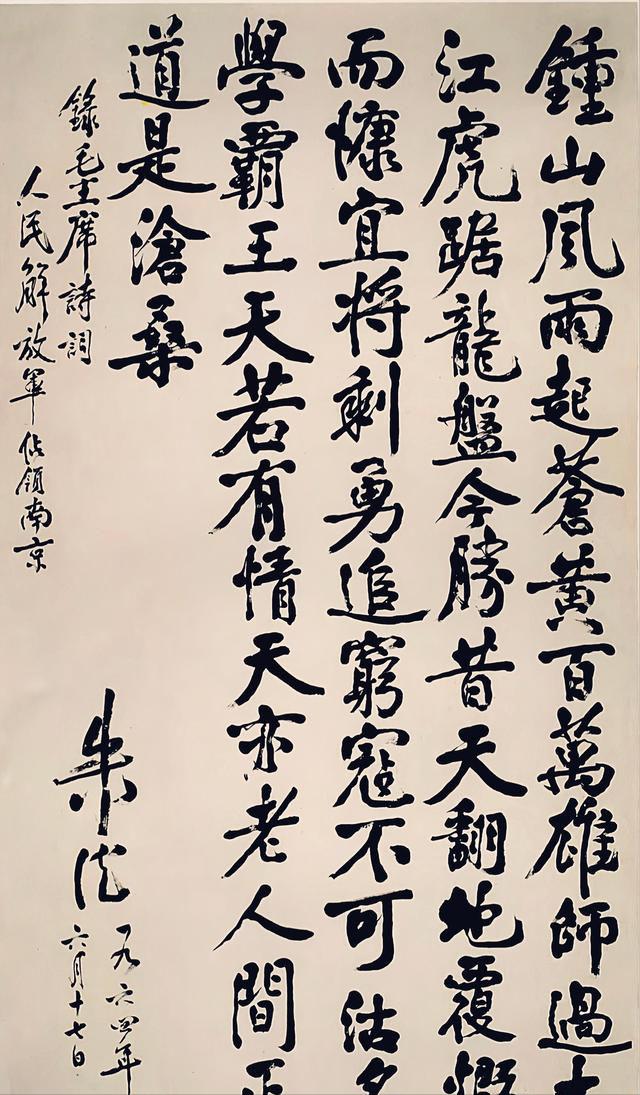 鍾山風雨起蒼黄百萬雄師過大
江虎踞龍盤今勝昔天翻地覆慨
而慷宜将剩勇追窮寇不可沽名
學霸王天若有情天亦老人間正
道是滄桑
錄毛主席詩詞
人民解放軍佔領南京
朱德
一九六四年
六月十七日